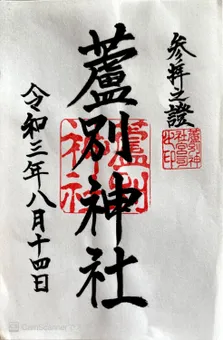 参拝之證
蘆別神社
蘆別神社
蘆別神社宮司之印
令和三年八月十四日
CamScanner